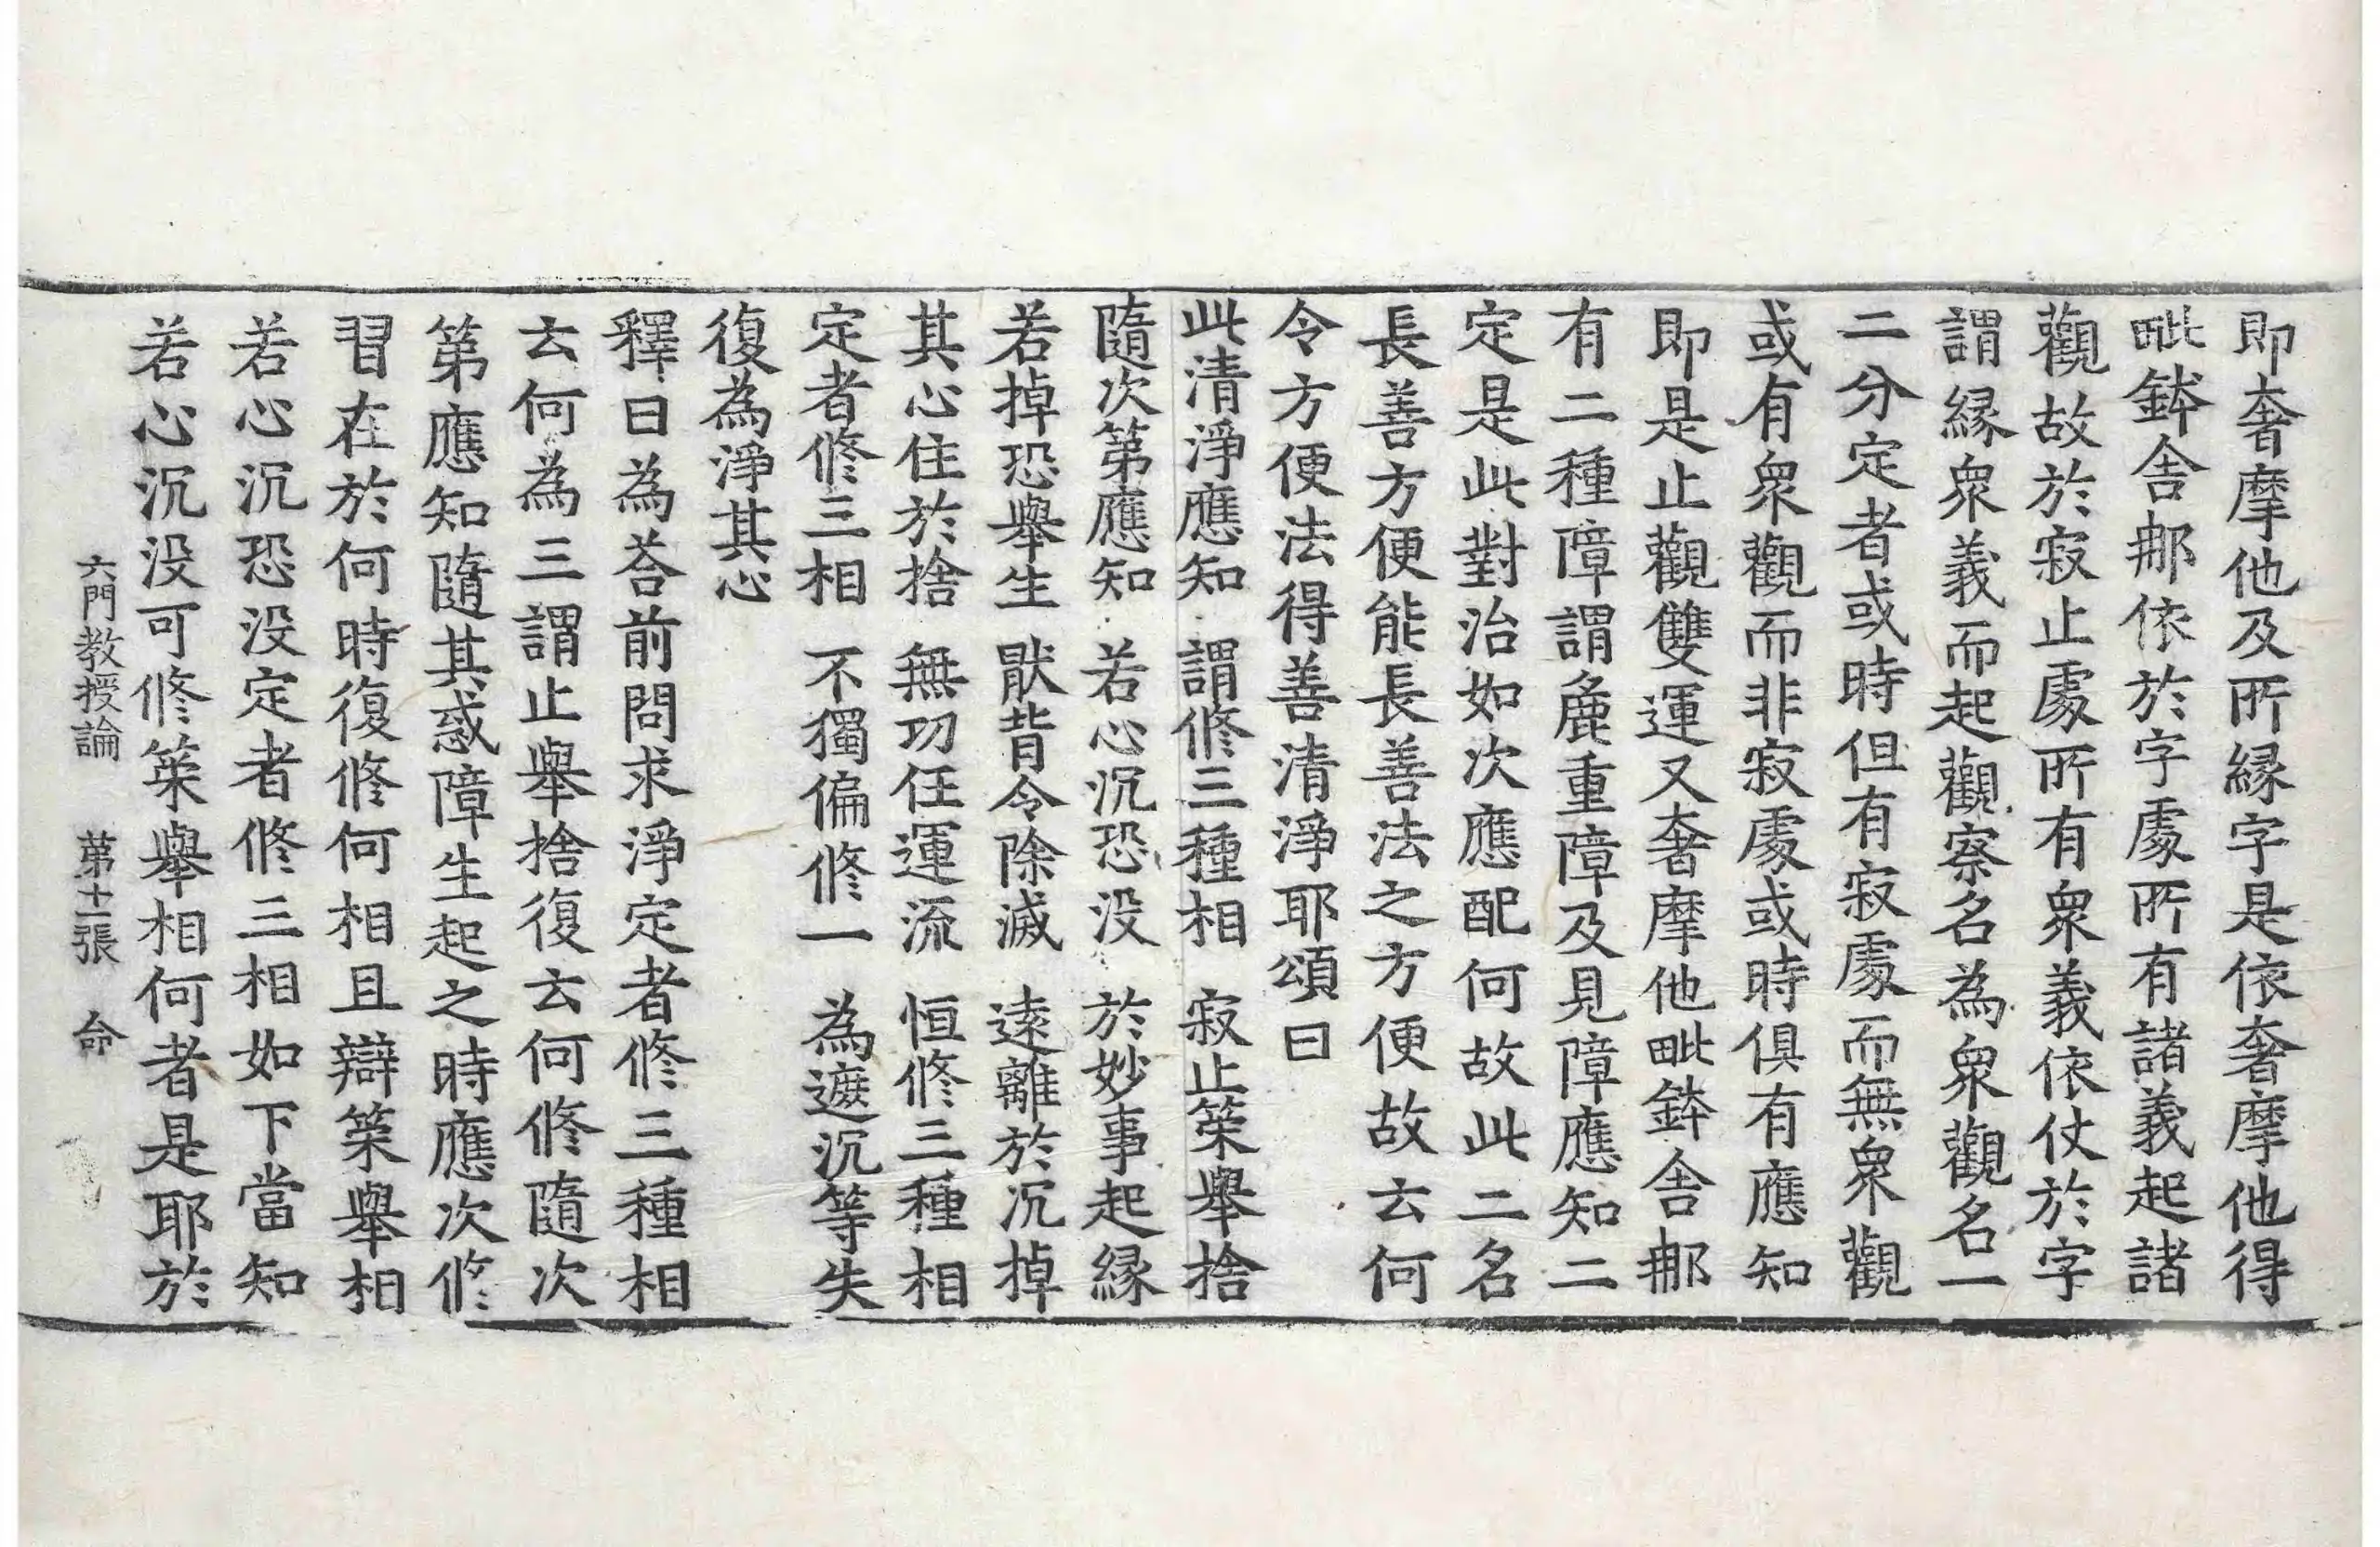 即奢摩他及所縁字是依奢摩他得
毗鉢舍那依於字處所有諸義起諸
觀故於寂止處所有衆義依仗於字
謂縁衆義而起觀察名為衆觀名一
二分定者或時但有寂處而無衆觀
或有衆觀而非寂處或時俱有應知
即是止觀雙運又奢摩他毗鉢舍那
有二種障謂麁重障及見障應知二
定是此對治如次應配何故此二名
長善方便能長善法之方便故云何
令方便法得善清淨耶頌曰
此清淨應知　謂修三種相　寂止策舉捨
隨次第應知　若心沉恐没　於妙事起縁
若掉恐舉生　猒背令除滅　逺離於沉掉
其心住於捨　無功任運流　恒修三種相
定者修三相　不獨偏修一　為遮沉等失
復為淨其心
釋曰為荅前問求淨定者修三種相
云何為三謂止舉捨復云何修隨次
第應知隨其惑障生起之時應次修
習在於何時復修何相且辯策舉相
若心沉恐没定者修三相如下當知
若心沉没可修策舉相何者是耶於
六門教授論　第十一張　命